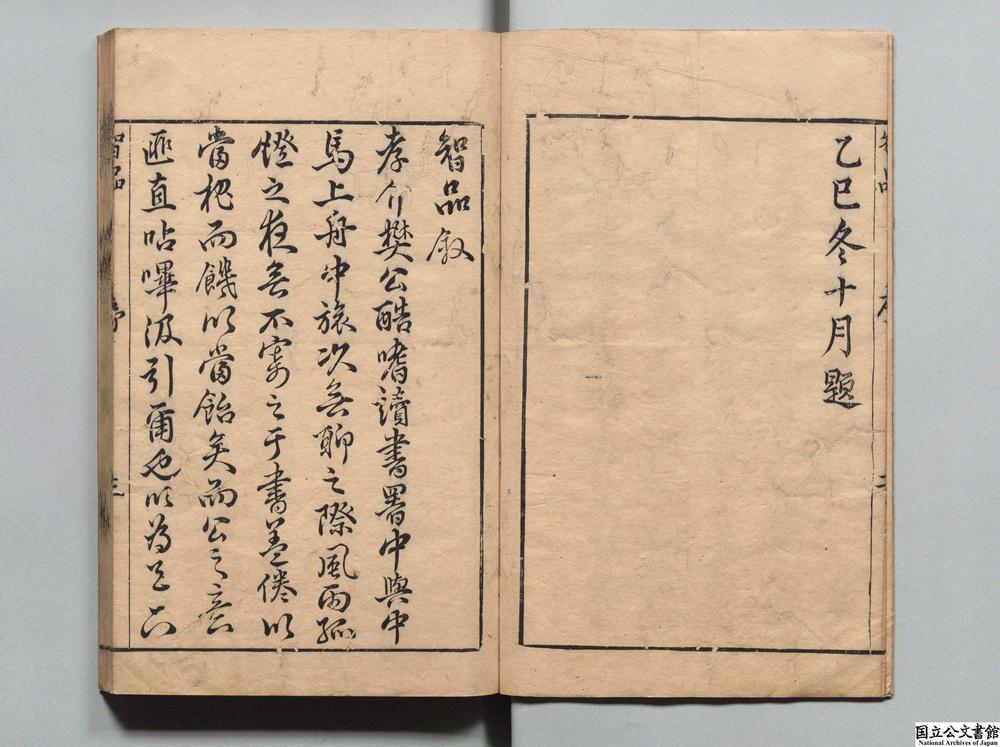 乙巳冬十月題
智品叙
孝介樊公酷嗜讀書署中輿中
馬上舟中旅次無聊之際風雨孤
燈之夜無不寄之于書蓋倦以
當枕而饑以當飴矣而公之意
匪直呫嗶汲引爾也以為
智品
国立公文書館
National Archives of Japan